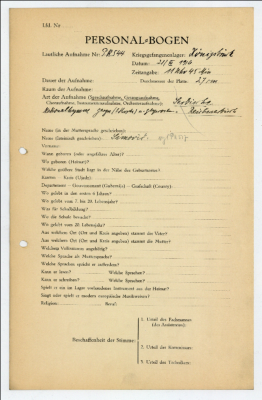 Lfd. Nr.
PERSONAL-BOGEN
Lautliche Aufnahme Nr.: PK 544 Kriegsgefangenenlager: Königsbrück
Datum:
Zeitangabe: 11 Uhr 45 Min
Dauer der Aufnahme: Durchmesser der Platte: 27 cm
Raum der Aufnahme:
Art der Aufnahme (Sprechaufnahme, Gesangsaufnahme,
Choraufnahme, Instrumentenaufnahme, Orchesteraufnahme):
Name (in der Muttersprache geschrieben):
Name (lateinisch geschrieben):
Vorname:
Wann geboren (oder ungefähres Alter)?
Wo geboren (Heimat)?
Welche größere Stadt liegt in der Nähe des Geburtsortes?
Kanton — Kreis (Ujedz)
Departement — Gouvernement (Gubernija) — Grafschaft (County)
Wo gelebt in den ersten 6 Jahren?
Wo gelebt vom 7. bis 20. Lebensjahr?
Was für Schulbildung?
Wo die Schule besucht?
Wo gelebt vom 20. Lebensjahr?
Aus welchem Ort (Ort und Kreis angeben) stammt der Vater?
Aus welchem Ort (Ort und Kreis angeben) stammt die Mutter?
Welchem Volksstamm angehörig?
Welche Sprache als Muttersprache?
Welche Sprachen spricht er außerdem?
Kann er lesen? Welche Sprachen?
Kann er schreiben? Welche Sprachen?
Spielt er ein im Lager vorhandenes Instrument aus der Heimat?
Singt oder spielt er modern europäische Musikweisen?
Religion: Beruf:
1. Urteil des Fachmannes
(des Assistenten):
Beschaffenheit der Stimme:
2. Urteil des Kommissars:
3. Urteil des Technikers: